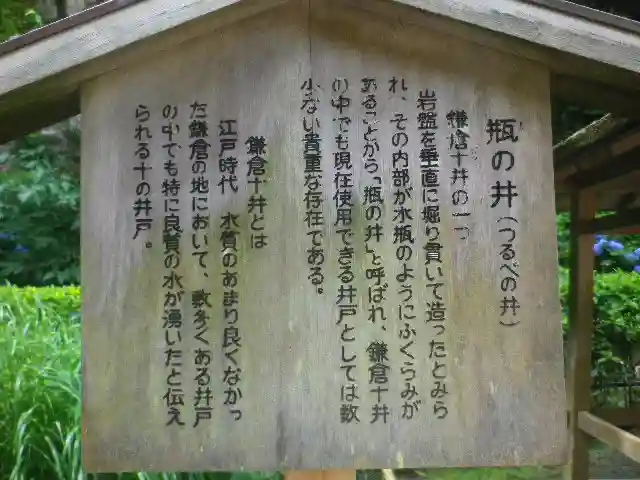 瓶の井(つるべの井)
鎌倉十井の一つ
岩盤を垂直に掘り貫いて造ったとみら
れ、その内部が水瓶のようにふくらみが
あることから「瓶の井」と呼ばれ、鎌倉十井
の中でも現在使用できる井戸としては数
少ない貴重な存在である。
鎌倉十井とは
江戸時代 水質のあまり良くなかっ
た鎌倉の地において、数多くある井戸
の中でも特に良質の水が湧いたと伝え
られる十の井戸。